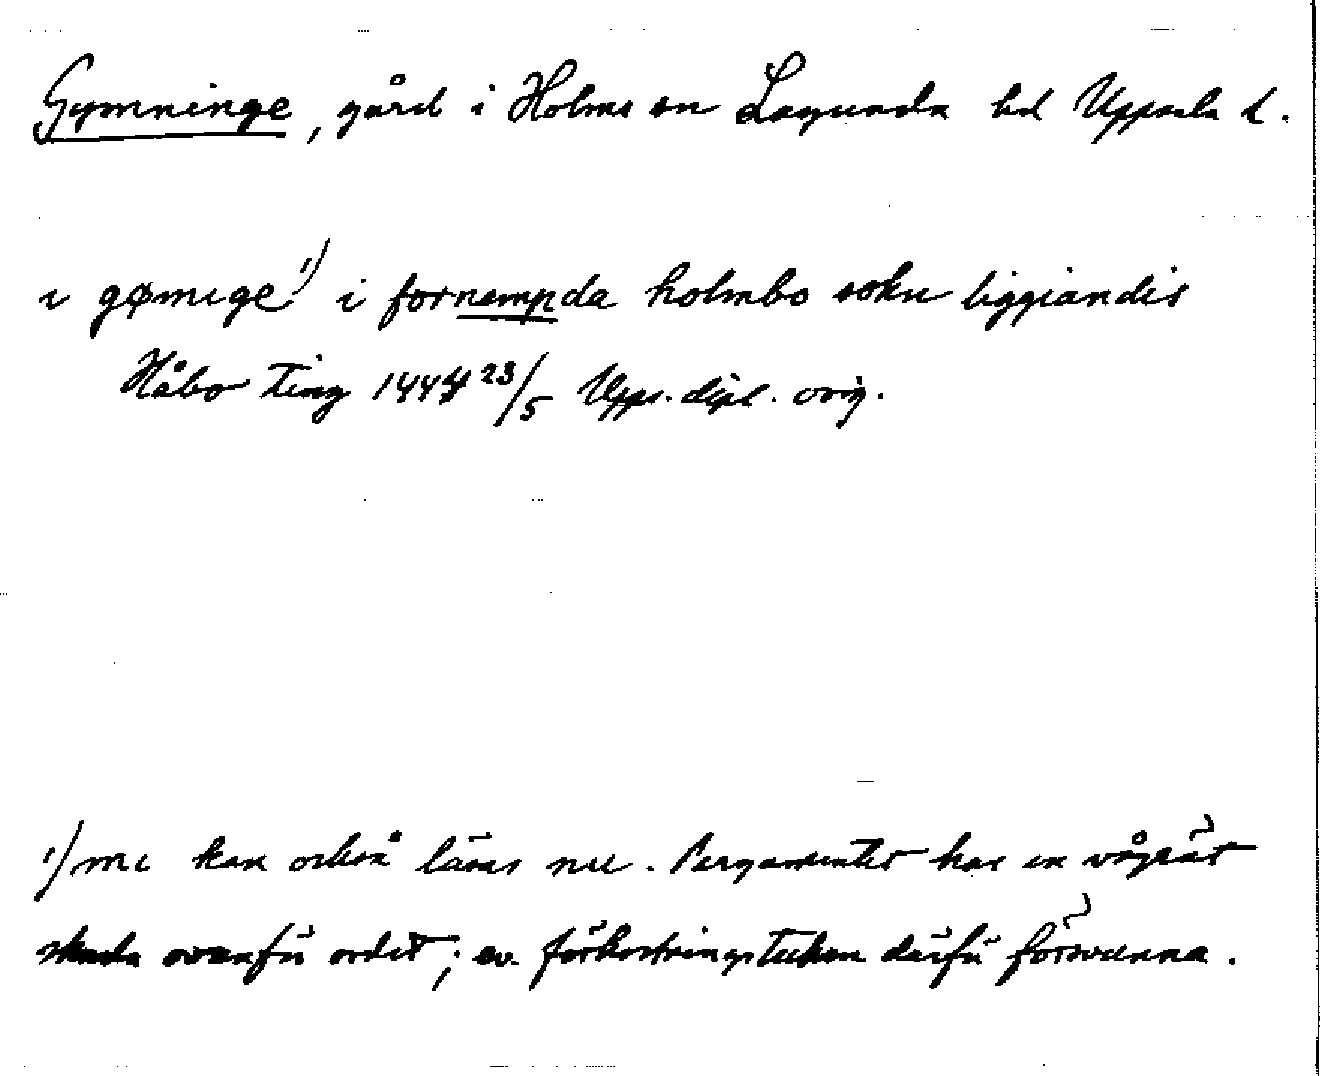 Gymninge, gård i Holms sn Lagunda hd Uppsala l.
i gømige 1) i fornempda holmbo sokn liggiandis
Håbo Ting 1444 23/5 Upps. dipl. orig.
1) mi kan också läsas nu. Pergamentet har en vågrät
skada ovanför ordet; ev. förkortningstecken därför försvunna.